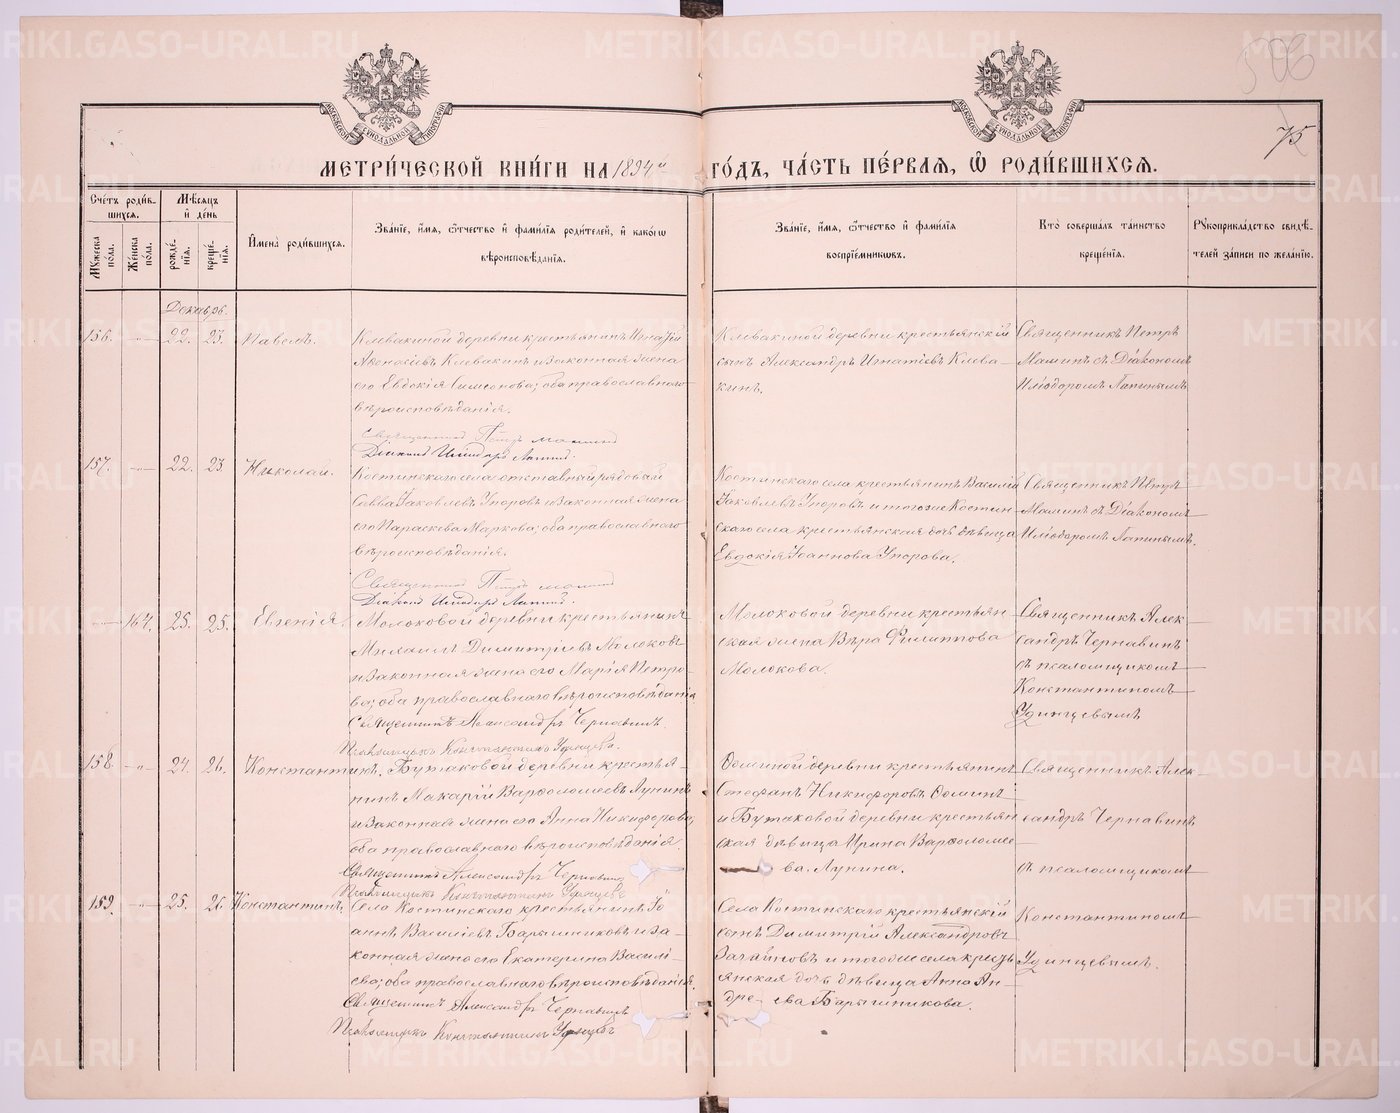 METRIKI.GASO-URAL.RU
75
МЕТРИ́ЧЕСКОЙ КНИ́ГИ НА 1894й ГО́ДЪ, ЧА́СТЬ ПЕ́РВАЯ, Ѡ РОДИ́ВШИХСЯ.
МОСКОВСКОЙ СѴНОДАЛЬНОЙ ТИПОГРАФІИ
МОСКОВСКОЙ СѴНОДАЛЬНОЙ ТИПОГРАФІИ
Сче́тъ роди́вшихся.
Му́жеска по́ла.
Же́нска по́ла.
Мѣ́сяцъ и де́нь
рожде́нія.
креще́нія.
Имена̀ роди́вшихся.
Зва́ніе, и́мя, ѻ́тчество и фами́лія роди́телей, и како́гѡ
вѣроисповѣ́данія.
Зва́ніе, и́мя, ѻ́тчество и фами́лія
воспрїе́мникѡвъ.
Кто̀ соверша́лъ та́инство
креще́нія.
Рꙋкоприкла́дство свидѣ́-
телей за́писи по жела́нію.
Декабрь.
156. -"- 22. 23. Павелъ.
Клевакиной деревни крестьянинъ Игнатій
Аѳонасіевъ Клевакинъ и законная жена
его Евдокія Симеонова; оба православнаго
вѣроисповѣданія.
Священникъ Петръ Маминъ
Діаконъ Иліодоръ Лапинъ.
Клевакиной деревни крестьянскій
сынъ Александръ Игнатіевъ Клева-
кинъ.
Священникъ Петръ
Маминъ съ Діакономъ
Иліодоромъ Лапинымъ
157. -"- 22. 23. Николай.
Костинскаго села отставный рядовой
Савва Іаковлевъ Упоровъ и законная жена
его Параскева Маркова; оба православнаго
вѣроисповѣданія.
Священникъ Петръ Маминъ
Діаконъ Иліодоръ Лапинъ.
Костинскаго села крестьянинъ Василій
Іаковлевъ Упоровъ и того же Костин-
скаго села крестьянская дочь дѣвица
Евдокія Іоаннова Упорова.
Священникъ Петръ
Маминъ съ Діакономъ
Иліодоромъ Лапинымъ.
-"- 164. 25. 25. Евгенія.
Молоковой деревни крестьянинъ
Михаилъ Димитріевъ Молоковъ
и законная жена его Марія Петро-
ва; оба православнаго вѣроисповѣданія
Священникъ Александръ Чернавинъ.
Псаломщикъ Константинъ Удинцевъ.
Молоковой деревни крестьян-
ская жена Вѣра Филиппова
Молокова.
Священникъ Алек-
сандръ Чернавинъ
съ псаломщикомъ
Константиномъ
Удинцевымъ
158. -"- 24. 26. Константинъ.
Бутаковой деревни крестья-
нинъ Макарій Варѳоломеевъ Лунинъ
и законная жена его Анна Никифорова;
оба православнаго вѣроисповѣданія.
Священникъ Александръ Чернавинъ
Псаломщикъ Константинъ Удинцевъ
Ѳоминой деревни крестьянинъ
Стефанъ Никифоровъ Ѳоминъ
и Бутаковой деревни крестьян-
ская дѣвица Ирина Варѳоломее-
ва Лунина.
Священникъ Алек-
сандръ Чернавинъ
съ псаломщикомъ
159. -"- 25. 26. Константинъ.
Села Костинскаго крестьянинъ Іо-
аннъ Василіевъ Барышниковъ и за-
конная жена его Екатерина Василі-
ева; оба православнаго вѣроисповѣданія
Священникъ Александръ Чернавинъ
Псаломщикъ Константинъ Удинцевъ
Села Костинскаго крестьянскій
сынъ Димитрій Александровъ
и того же села кресть-
янская дочь дѣвица Анна Ан-
дреева Барышникова.
Константиномъ
Удинцевымъ.